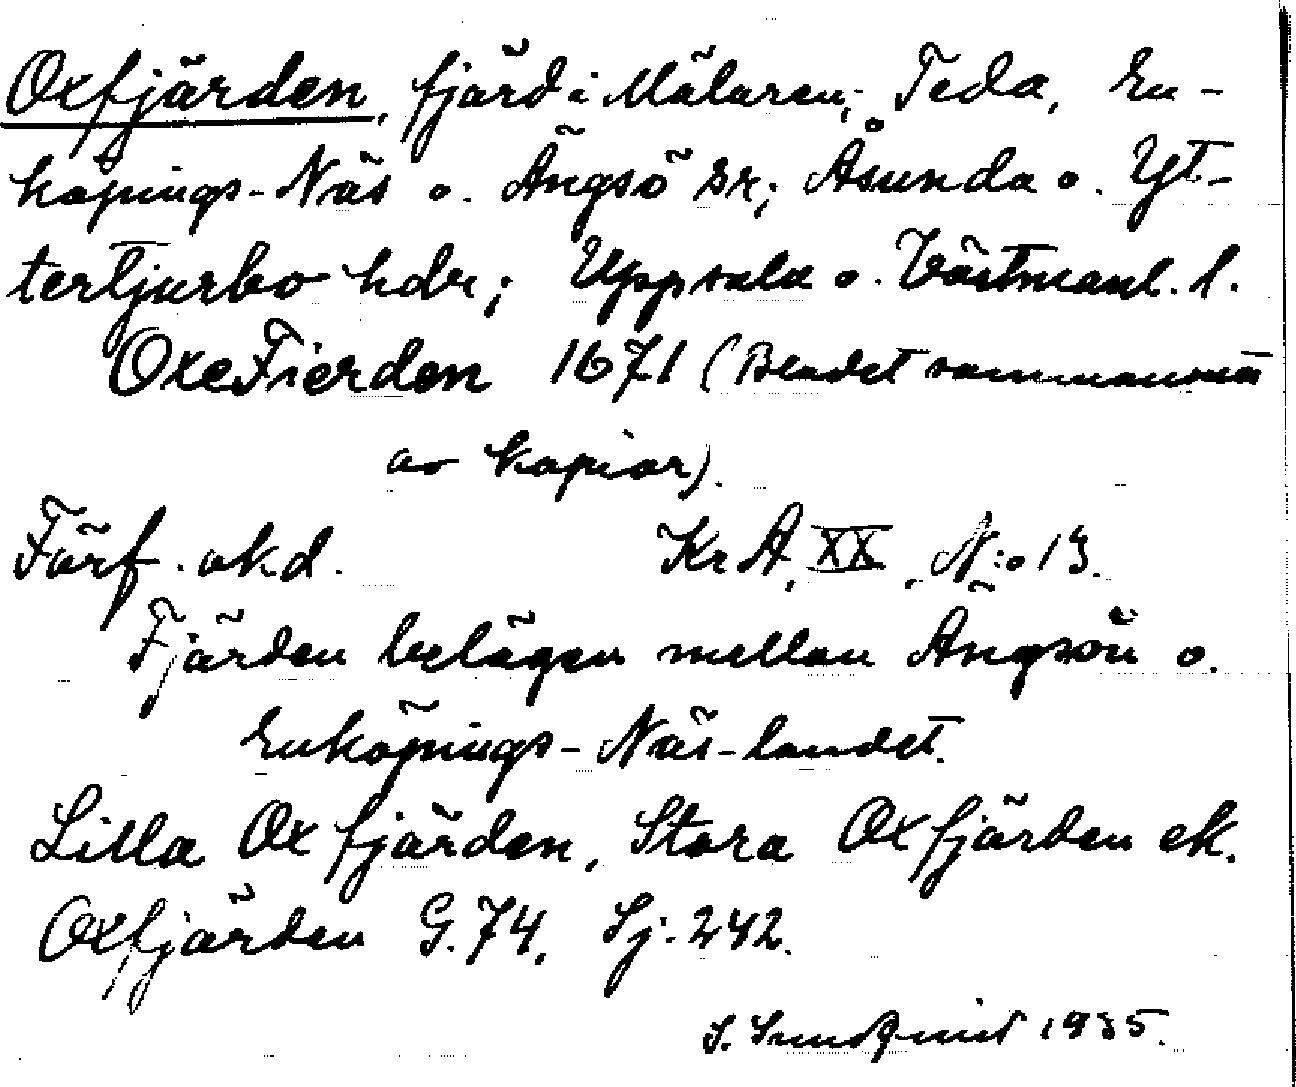 Oxfjärden, fjärd i Mälaren; Teda, En-
köpings-Näs o. Ängsö sr; Åsunda o. Yt-
tertjurbo hdr; Uppsala o. Västmanl. l.
OxeFierden 1671 (Bladet sammansatt
av kopior).
Förf. okd. KrA, XX, N:o 13.
Fjärden belägen mellan Ängsön o.
Enköpings-Näs-landet.
Lilla Oxfjärden, Stora Oxfjärden ek.
Oxfjärden G.74, Sj. 242.
S. Sundquist 1935.